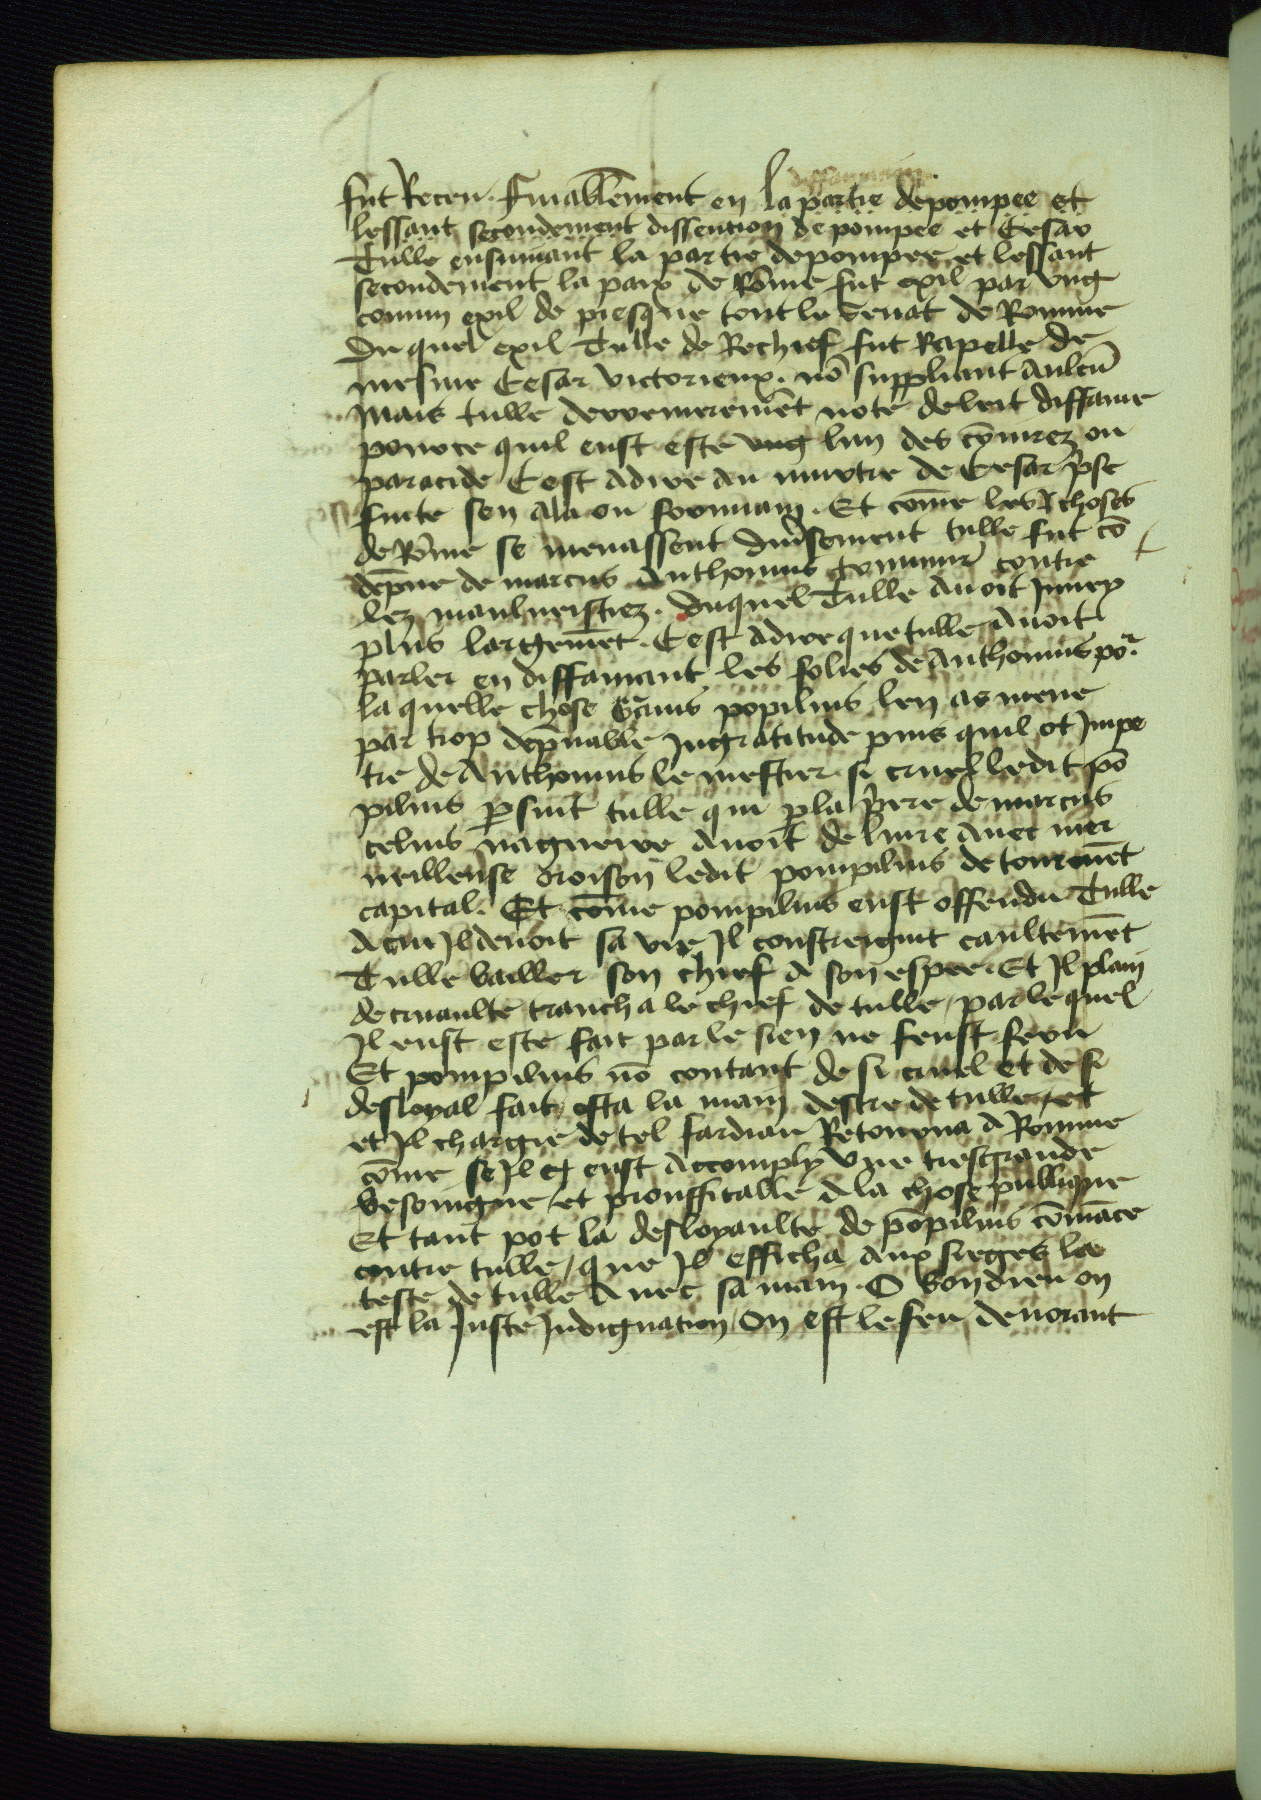 fut Receu. Finablement en la partie de pompee et
lessant secondement dissention de pompee et Cesar
Tulle ensuiuant la partie de pompee et lessant
secondement la paix de Rōme fut exil par vng
comun exil de presque tout le senat de Romme
Du quel exil Tulle de Rechief fut Rapelle de
mesme Cesar victorieux. nō suppliant Aulcū
Mais tulle derrenieremēt note de leit diffame
pource quil eust este vng lun des cōiurez ou
paracide Cest adire au murtre de Cesar
fuite sen ala ou formiam. Et cōme les choses
de Rōme se menassent diu'sement tulle fut cō
dēpne de marcus Anthonius contre
lez Duquel Tulle Auoit
plus largemēt. Cest adire que tulle Auoit
parler en diffamant les folies de Anthonius por
la quelle chose popilius len as mene
par trop dēpnable Ingratitude puis quil ot Impe
tre de Anthonius le mestier si cruel ledit pō
pilius psuit tulle qui p la p'iere de marcus
celius naguere Auoit deliure Auec mer
ueilleuse oroison ledit pompilius de tourmēt
capital. Et cōme pompilius eust offendu Tulle
A cui Il deuoit sa vie Il constreignit caultemēt
Tulle bailler son chief A son espee. Et Il plain
de cruaulte trancha le chief de tulle / par le quel
Il eust este fait par le sien ne feust feru
Et pompilius nō contant de si cruel et de si
desloyal fait osta la main destre de tulle / et
et Il chargie de tel fardiau Retourna A Romme
cōme se Il eust Accomply vne tresgrande
besoingne / et prouffitable A la chose publique
Et tant pot la desloyaulte de pōpilius cōmāce
contre tulle / que Il efficha Aux sieges la
teste de tulle Auec sa main. O bon dieu ou
est la Juste Indignation Ou est le feu deuorant